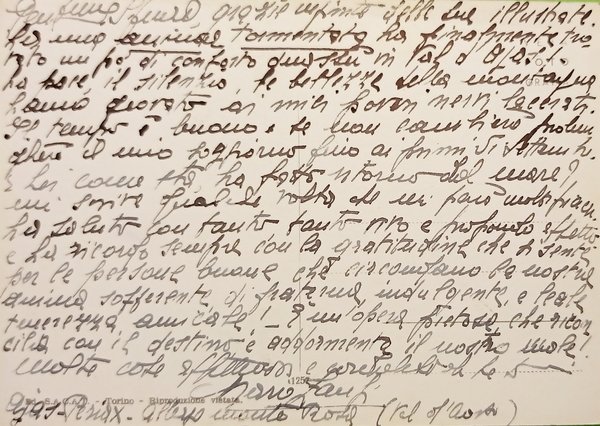 grazie infinite delle sue illustrate.
La mia anima tormentata ha finalmente tro-
vato un po' di conforto quassù in Val d'Ajas,
la pace, il silenzio, le bellezze della montagna
hanno giovato ai miei poveri nervi lacerati.
Il tempo è buono e se non cambierà prolun-
gherò il mio soggiorno fino ai primi di settemb.
E Lei come sta, ha fatto ritorno dal mare?
mi scriva qualche volta che mi farà molto piacere.
La saluto con tanto tanto vivo e profondo affetto
e La ricordo sempre con la gratitudine che si sente
per le persone buone che circondano la nostra
anima sofferente di fraterna, indulgente, e leale
tenerezza, amicale! - È un'opera pietosa che ricon-
cilia con il destino e addormenta il nostro male!
molte cose affettuose e
1257
Ed. S.A.C.A.T. - Torino - Riproduzione vietata.
Ajas - Periax - Albergo Monte Rosa (Val d'Aosta)
FOTO